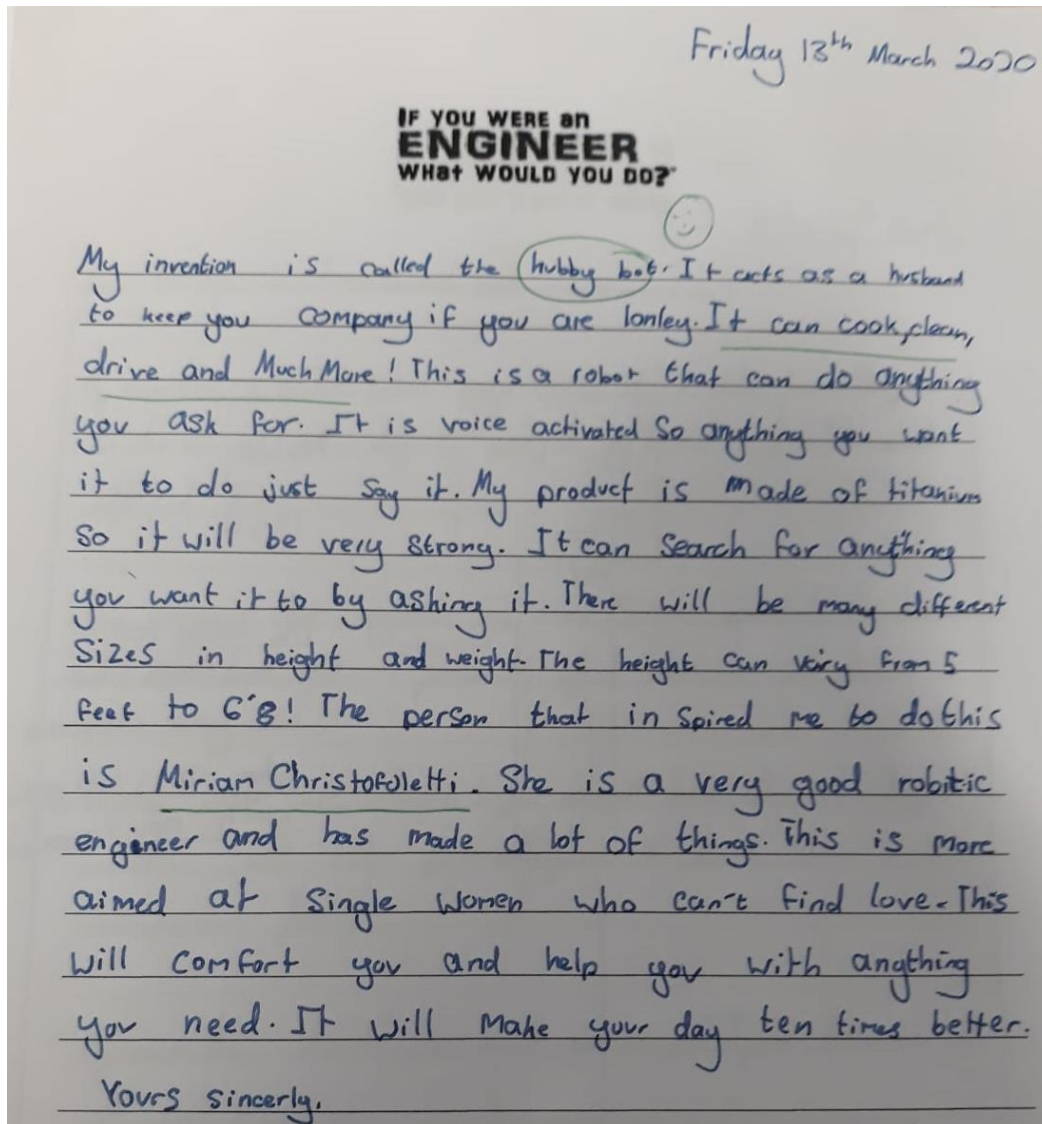 Friday 13th March 2020
IF YOU WERE an
ENGINEER
WHat WOULD YOU DO?
My invention is called the hubby bot. It acts as a husband
to keep you company if you are lonley. It can cook, clean,
drive and Much More! This is a robot that can do anything
you ask for. It is voice activated So anything you want
it to do just say it. My product is made of titanium
So it will be very strong. It can search for anything
you want it to by asking it. There will be many different
Sizes in height and weight. The height can vary from 5
feet to 6'8! The person that in spired me to do this
is Miriam Christofoletti. She is a very good robitic
engineer and has made a lot of things. This is more
aimed at single women who can't find love. This
will comfort you and help you with anything
you need. It will make your day ten times better.
Yours sincerely,